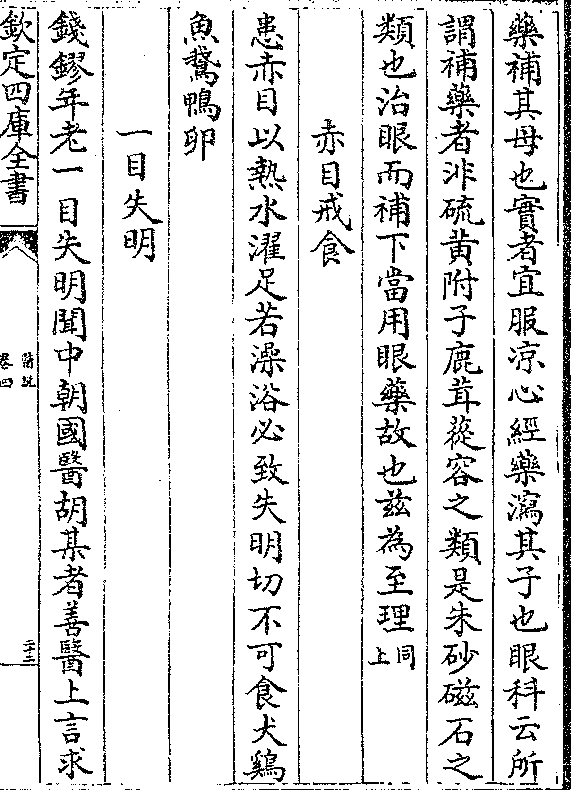 藥補其母也實者宜服凉心經藥瀉其子也眼科云所
謂補藥者非硫黄附子鹿茸蓯容之類是朱砂磁石之
類也治眼而補下當用眼藥故也兹為至理同上
赤目戒食
患赤目以熱水濯足若澡浴必致失明切不可食犬鷄
魚鵞鴨卵
一目失明
錢鏐年老一目失明聞中朝國醫胡某者善醫上言求
欽定四庫全書
醫説
卷四
二十三